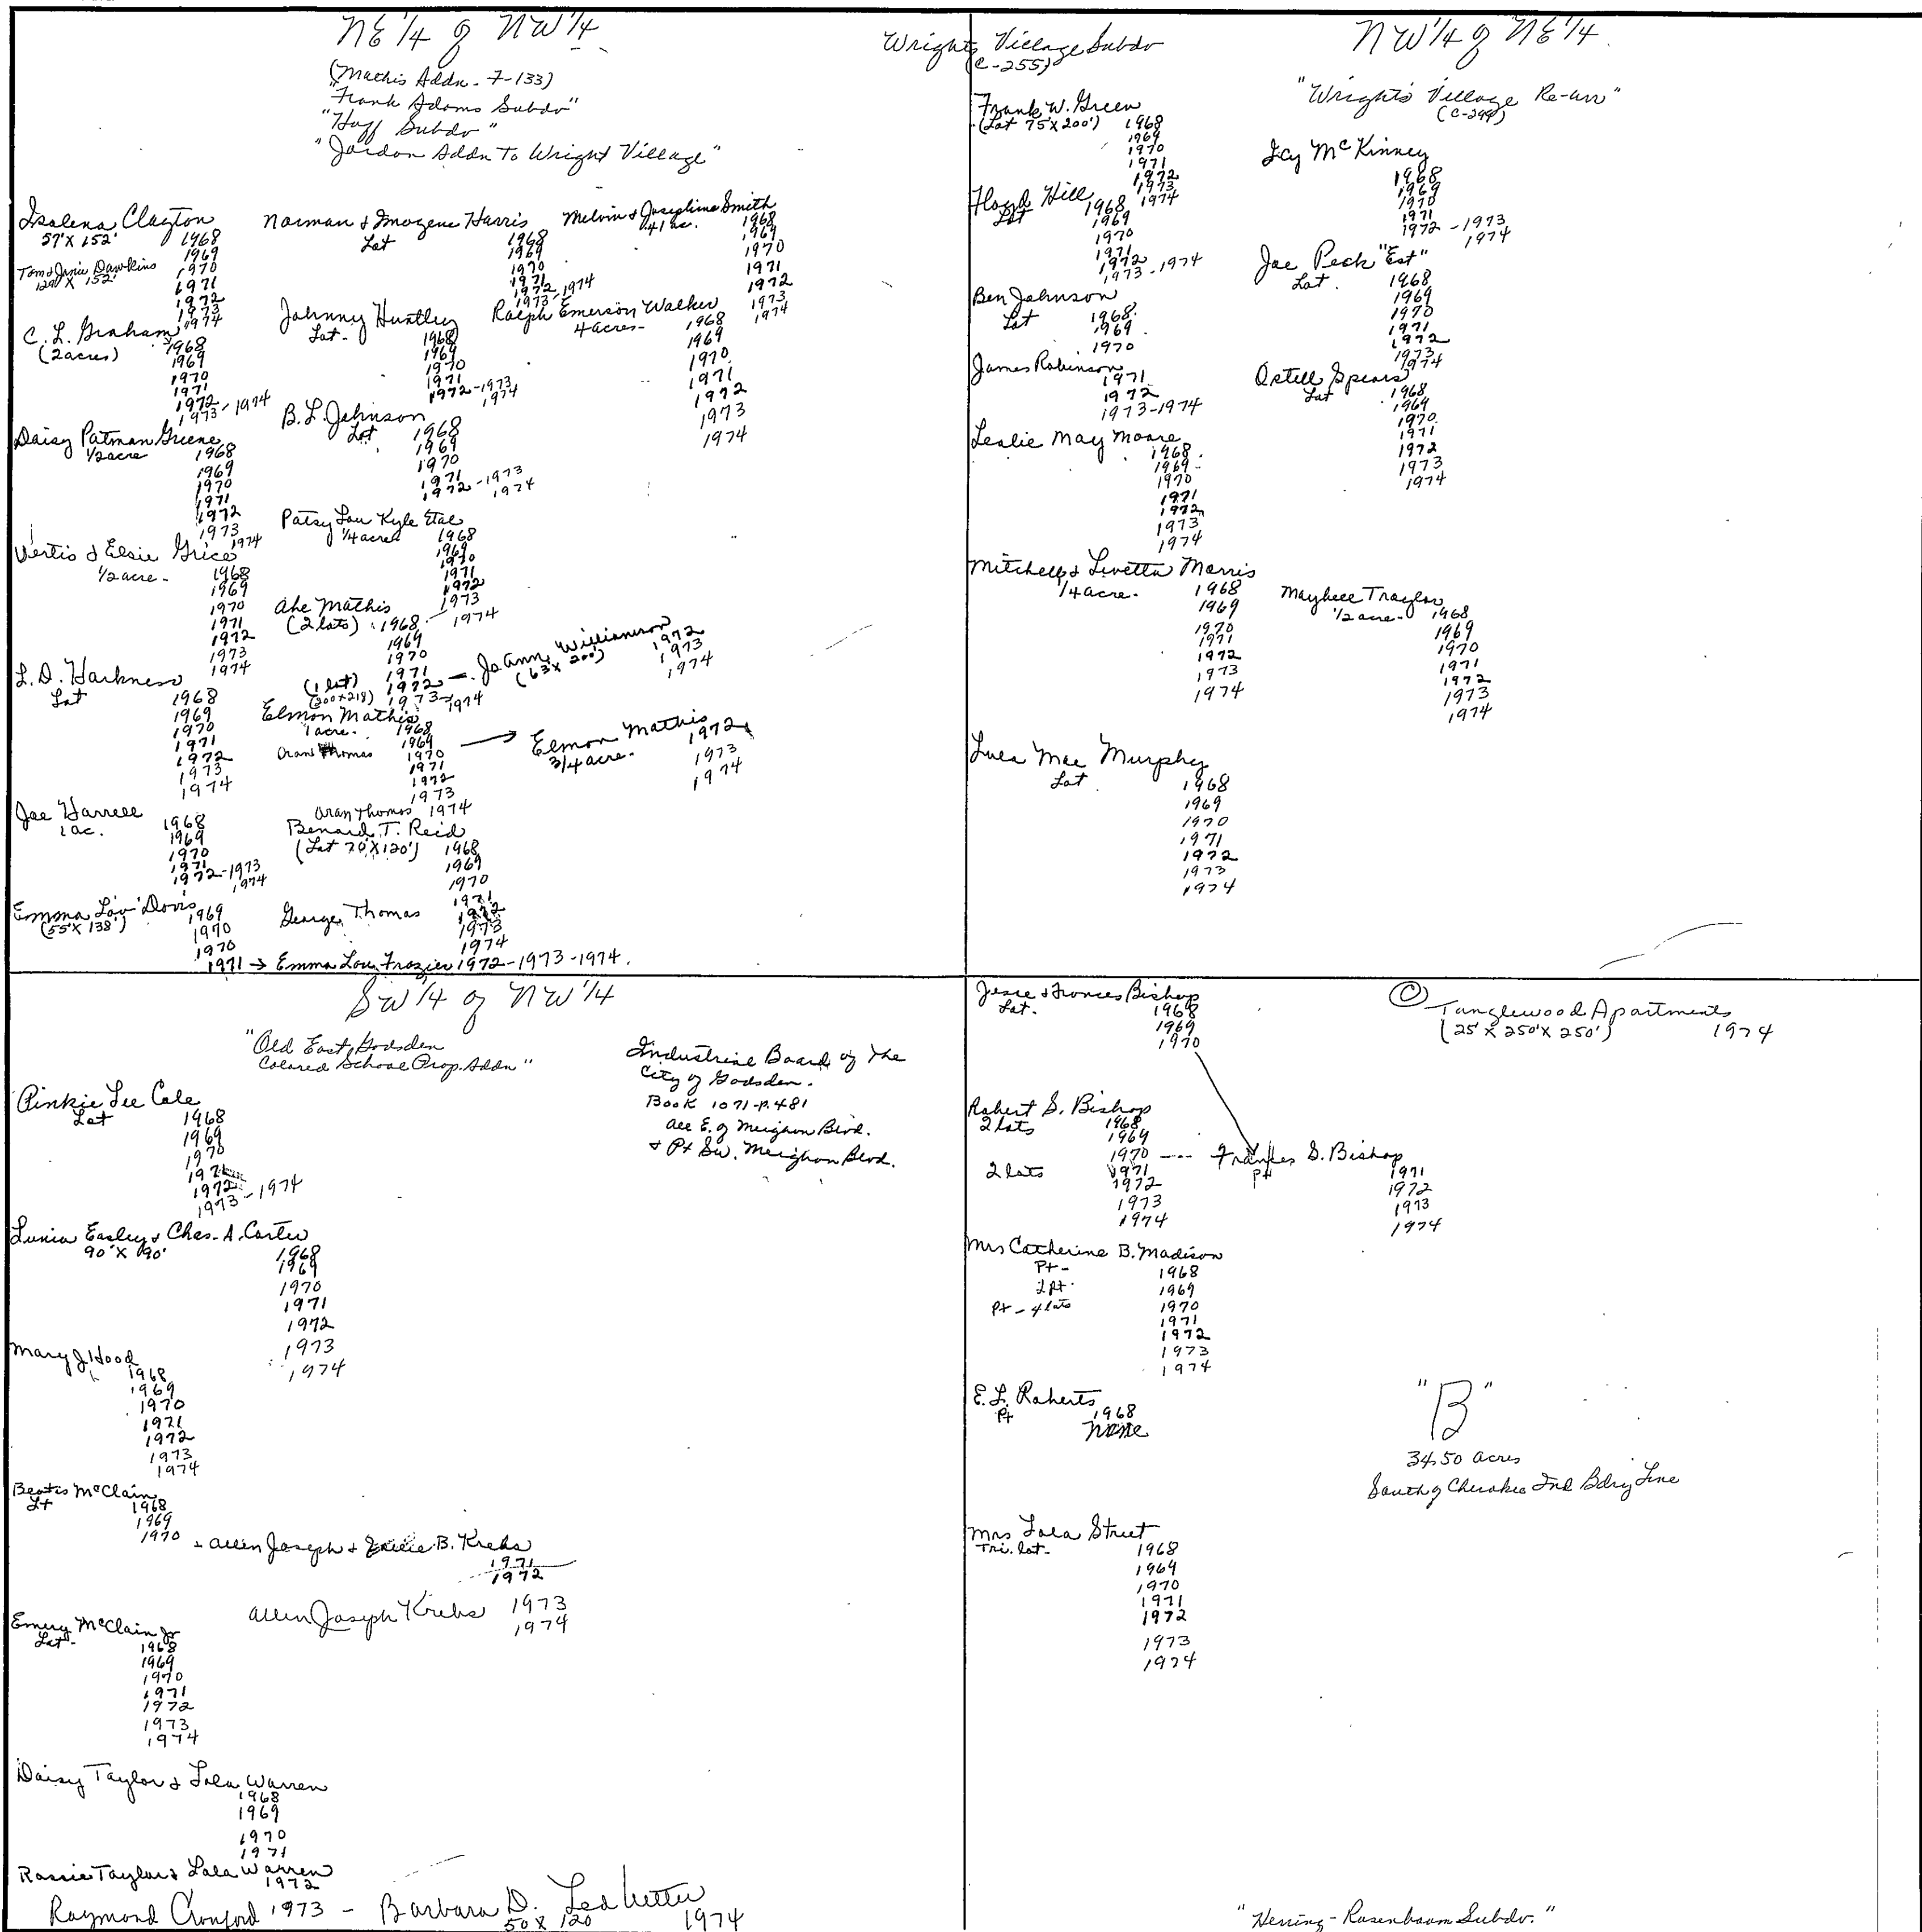 NE 1/4 of NW 1/4
(Mathis Addn. - 7-133)
"Frank Adams Subdv"
"Huff Subdv"
"Jordon Addn To Wright Village"
Isalena Clayton
57' X 152' 1968
1969
Tom & Janie Dawkins 1970
129' X 152' 1971
1972
1973
1974
C. L. Graham
(2 acres) 1968
1969
1970
1971
1972
1973 - 1974
Daisy Patman Greene
1/2 acre 1968
1969
1970
1971
1972
1973
1974
Vertis & Elsie Grice
1/2 acre - 1968
1969
1970
1971
1972
1973
1974
L. D. Harkness
Lot 1968
1969
1970
1971
1972
1973
1974
Joe Harrell
1 ac. 1968
1969
1970
1971
1972 - 1973
1974
Emma Lou Davis
(55' X 138') 1969
1970
1970
1971 → Emma Lou Frazier 1972 - 1973 - 1974.
Norman & Imogene Harris
Lot 1968
1969
1970
1971
1972
1973 - 1974
Johnny Huntley
Lot - 1968
1969
1970
1971
1972 - 1973
1974
B. L. Johnson
Lot 1968
1969
1970
1971
1972 - 1973
1974
Patsy Lou Kyle Etal
1/4 acre 1968
1969
1970
1971
1972
1973
1974
Abe Mathis
(2 lots) 1968
1969
1970
1971
(1 lot) 1972 - JoAnn Williamson 1972
(200 X 218) 1973 - 1974 (63' X 200') 1973
1974
Elmon Mathis
1 acre. 1968
1969 → Elmon Mathis 1972
Oran Thomas 1970 3/4 acre - 1973
1971 1974
1972
1973
Oran Thomas 1974
Benard T. Reid
(Lot 70' X 120') 1968
1969
1970
1971
George Thomas 1972
1973
1974
Melvin & Josephine Smith
41 ac. 1968
1969
1970
1971
1972
1973
1974
Ralph Emerson Walker
4 acres - 1968
1969
1970
1971
1972
1973
1974
Wrights Village Subdv
(C-255)
NW 1/4 of NE 1/4
"Wright's Village Re-arr"
(C-299)
Frank W. Green
(Lot 75' X 200') 1968
1969
1970
1971
1972
1973
1974
Floyd Hill
Lot 1968
1969
1970
1971
1972
1973 - 1974
Ben Johnson
Lot 1968
1969
1970
James Robinson
1971
1972
1973 - 1974
Leslie May Moore
1968
1969
1970
1971
1972
1973
1974
Mitchell & Livetta Morris
1/4 acre - 1968
1969
1970
1971
1972
1973
1974
Lula Mae Murphy
Lot 1968
1969
1970
1971
1972
1973
1974
Icy McKinney
1968
1969
1970
1971
1972 - 1973
1974
Joe Peck "Est"
Lot 1968
1969
1970
1971
1972
1973
1974
Ostell Spears
Lot 1968
1969
1970
1971
1972
1973
1974
Maybell Traylor
1/2 acre - 1968
1969
1970
1971
1972
1973
1974
SW 1/4 of NW 1/4
"Old East Gadsden
Colored School Prop. Addn"
Industrial Board of the
City of Gadsden.
Book 1071 - P. 481
All E. of Meighan Blvd.
& Pt Sw. Meighan Blvd.
Pinkie Lee Cole
Lot 1968
1969
1970
1971
1972
1973 - 1974
Lunia Easley & Chas. A. Carter
90' X 90' 1968
1969
1970
1971
1972
1973
1974
Mary J. Hood
1968
1969
1970
1971
1972
1973
1974
Beatis McClain
Lt 1968
1969
1970 & Allen Joseph & B. Krebs
1971
1972
Allen Joseph Krebs 1973
1974
Emery McClain Jr
Lot - 1968
1969
1970
1971
1972
1973
1974
Daisy Taylor & Lola Warren
1968
1969
1970
1971
Rassie Taylor & Lola Warren
1972
Raymond Cronford 1973 - Barbara D. Ledbetter
50 X 120 1974
Jesse & Frances Bishop
Lot. 1968
1969
1970
Robert S. Bishop
2 lots 1968
1969
1970 --- Frances S. Bishop
2 lots 1971 Pt 1971
1972 1972
1973 1973
1974 1974
Mrs Catherine B. Madison
Pt - 1968
2 pt. 1969
Pt - 4 lots 1970
1971
1972
1973
1974
E. L. Roberts
Pt 1968
None
Mrs Lola Street
Tri. lot - 1968
1969
1970
1971
1972
1973
1974
© Tanglewood Apartments
(25' X 250' X 250') 1974
"B"
34.50 acres
South of Cherokee Ind Bdry Line
"Herring - Rosenbaum Subdv."